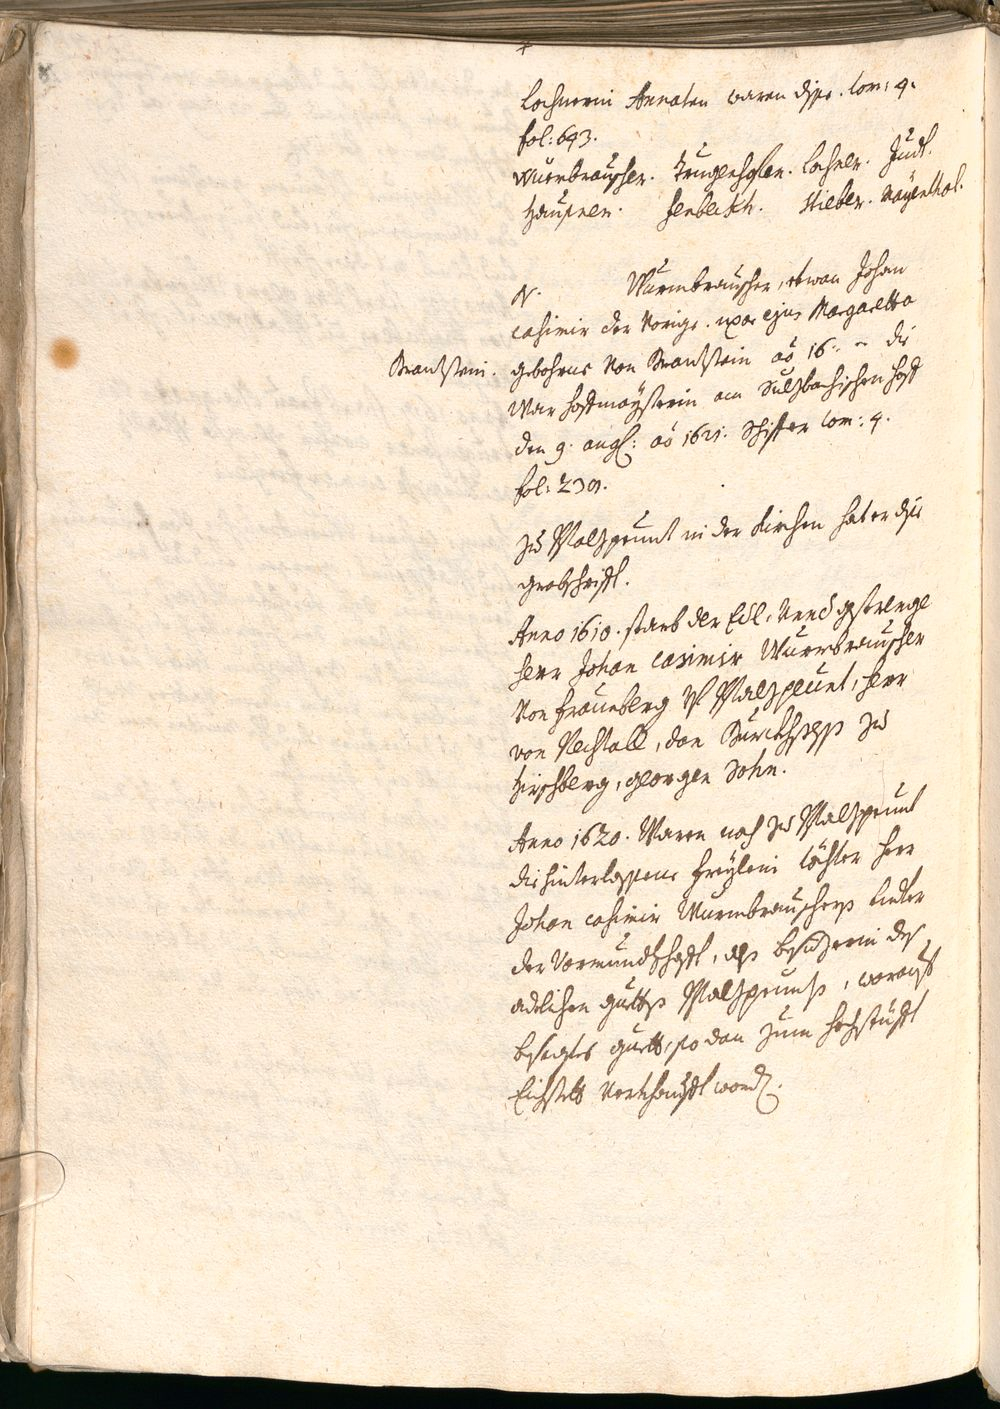 Lochnerin Annaten waren dise. tom: 4.
fol: 693.
Wurmbrauscher. Trugenhofen. Lochner. Jud.
Hausner. Senbekh. Stieber.
N. Wurmbrauscher, etwan Johan
Casimir der Vorige. uxor ejus Margaretta
Brandstein. gebohrne Von Brandstein aō 16.. die
War Hoffmaysterin am Sulzbachischen Hoff
den 9. aug: aō 1621. Schiffer tom: 4.
fol: 239.
Zu Pfalzpeunt in der Kirchen hat er dise
grabschrifft.
Anno 1610. starb der Edl, Vnnd gestrenge
Herr Johan Casimir Wurmbrauscher
Von Fraunberg Vf Pfalzpeunt, Herr
von Rechtall, dan Burckhsess zu
Hirschberg, Georgen Sohn.
Anno 1620. Waren noch zu Pfalzpeunt
die hinterlassene Freylein töchter Herr
Johan Casimir Wurmbrauschers unter
der Vormundtschafft, als besizerin des
adelichen guetts Pfalzpeunts, worauf
besagtes guett, so dan zum Hochstüfft
Eichstett Verkhaufft word.